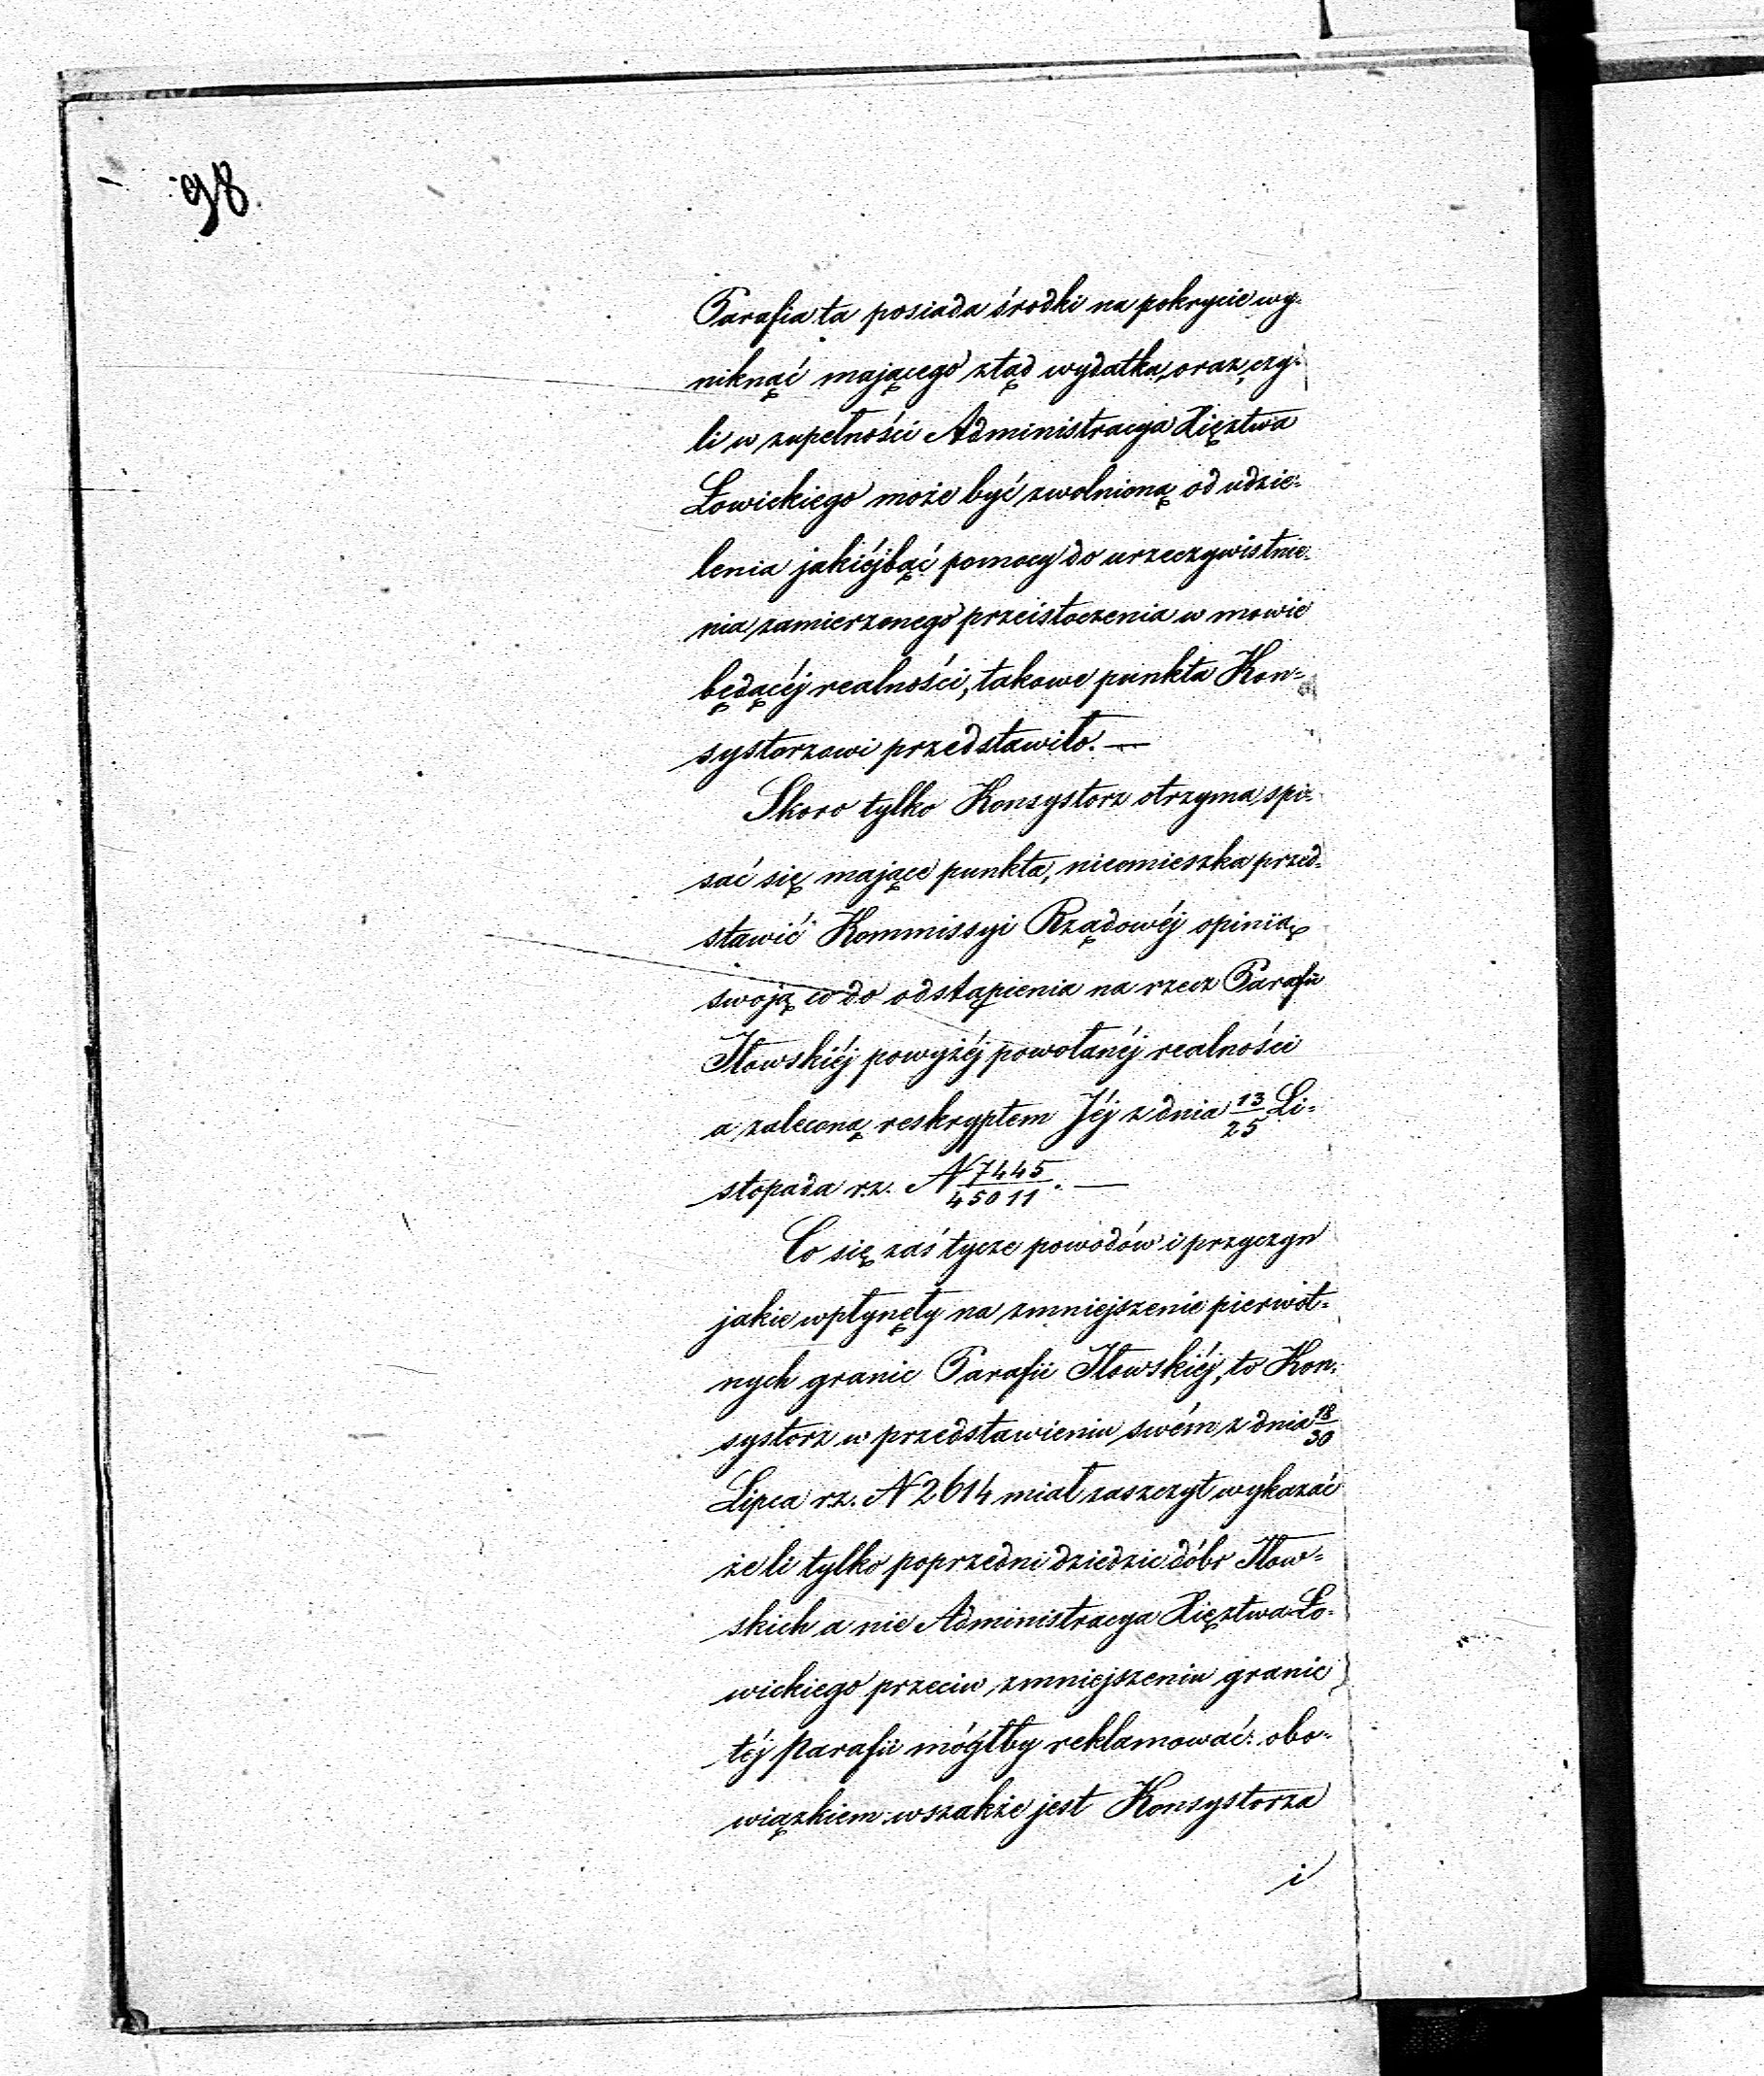 98.
Parafia ta posiada środki na pokrycie wy-
niknąć mającego ztąd wydatku, oraz, czy-
li w zupełności Administracya Xięztwa
Łowickiego może być zwolnioną od udzie-
lenia jakiéjbąć pomocy do urzeczywistnie-
nia zamierzonego przeistoczenia w mowie
będącéj realności, takowe punkta Kon-
systorzowi przedstawiło. —
Skoro tylko Konsystorz otrzyma spi-
sać się mające punkta, nieomieszka przed-
stawić Kommissyi Rządowéj opinią
swoją co do odstąpienia na rzecz Parafii
Iłowskiéj powyżéj powołanéj realności
a zaleconą reskryptem Jéj z dnia 13/25 Li-
stopada r.z. N 7445/45011. —
Co się zaś tycze powodów i przyczyn
jakie wpłynęły na zmniejszenie pierwot-
nych granic Parafii Iłowskiéj, to Kon-
systorz w przedstawieniu swém z dnia 18/30
Lipca r.z. N 2614 miał zaszczyt wykazać
że li tylko poprzedni dziedzic dóbr Iłow-
skich a nie Administracya Xięztwa Ło-
wickiego przeciw zmniejszeniu granic
téj Parafii mógłby reklamować: obo-
wiązkiem wszakże jest Konsystorza
i